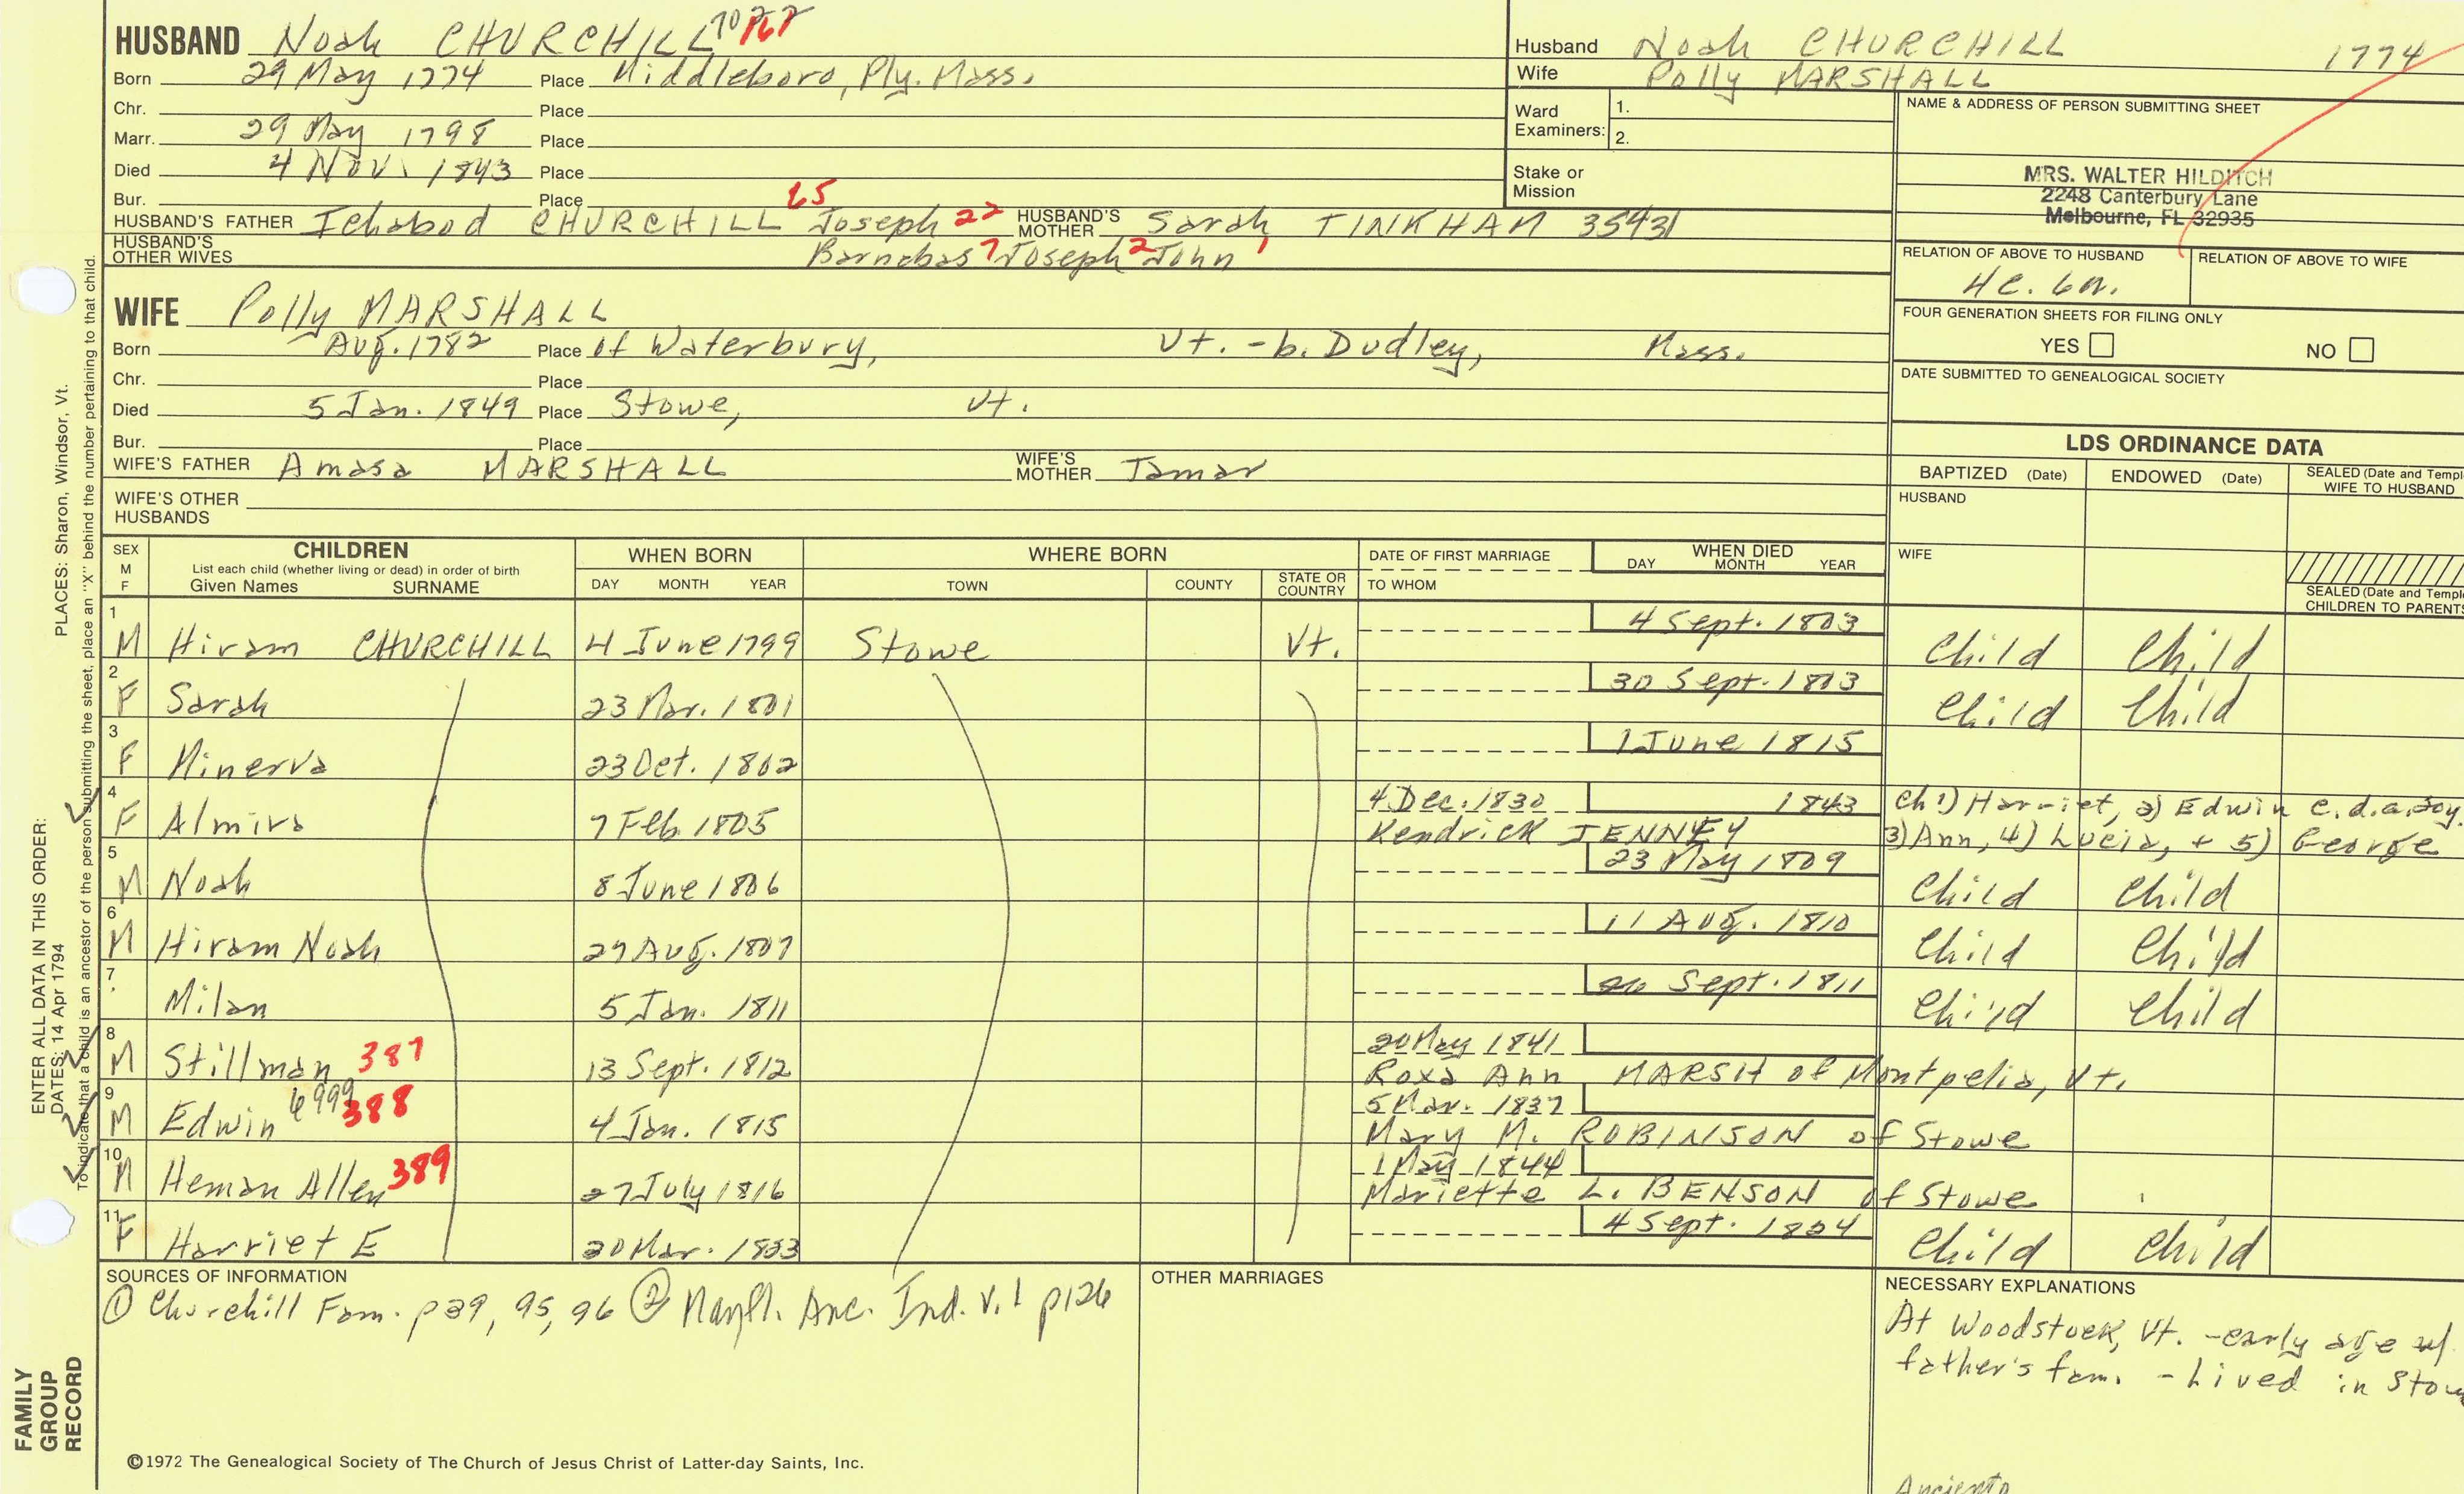 HUSBAND Noah CHURCHILL 7022 167
Born 29 May 1774 Place Middleboro, Ply. Mass.
Chr. Place
Marr. 29 May 1798 Place
Died 4 Nov. 1843 Place
Bur. Place
HUSBAND'S FATHER Ichabod CHURCHILL 65 Joseph 22 HUSBAND'S MOTHER Sarah TINKHAM 35431
HUSBAND'S OTHER WIVES Barnabas 7 Joseph 2 John 1
WIFE Polly MARSHALL
Born Aug. 1782 Place of Waterbury, Vt. - b. Dudley, Mass.
Chr. Place
Died 5 Jan. 1849 Place Stowe, Vt.
Bur. Place
WIFE'S FATHER Amasa MARSHALL WIFE'S MOTHER Tamar
WIFE'S OTHER HUSBANDS
Husband Noah CHURCHILL 1774
Wife Polly MARSHALL
Ward Examiners: 1.
2.
Stake or Mission
NAME & ADDRESS OF PERSON SUBMITTING SHEET
MRS. WALTER HILDITCH
2248 Canterbury Lane
Melbourne, FL 32935
RELATION OF ABOVE TO HUSBAND RELATION OF ABOVE TO WIFE
4c. 6r.
FOUR GENERATION SHEETS FOR FILING ONLY
YES NO
DATE SUBMITTED TO GENEALOGICAL SOCIETY
LDS ORDINANCE DATA
BAPTIZED (Date) ENDOWED (Date) SEALED (Date and Templ
WIFE TO HUSBAND
HUSBAND
WIFE
SEALED (Date and Templ
CHILDREN TO PARENTS
SEX M F CHILDREN WHEN BORN WHERE BORN DATE OF FIRST MARRIAGE WHEN DIED
List each child (whether living or dead) in order of birth
Given Names SURNAME DAY MONTH YEAR TOWN COUNTY STATE OR COUNTRY TO WHOM DAY MONTH YEAR
1 4 Sept. 1803
M Hiram CHURCHILL 4 June 1799 Stowe Vt. Child Child
2 30 Sept. 1803
F Sarah 23 Mar. 1801 Child Child
3 1 June 1815
F Minerva 23 Oct. 1802
4 4 Dec. 1830 1843 Ch 1) Harriet, 2) Edwin c. d. a. Joy.
F Almira 7 Feb 1805 Kendrick JENNEY 3) Ann, 4) Lucia, + 5) George
5 23 May 1809
M Noah 8 June 1806 Child Child
6 11 Aug. 1810
M Hiram Noah 29 Aug. 1807 Child Child
7 Sept. 1811
Milan 5 Jan. 1811 Child Child
8 20 May 1841
M Stillman 387 13 Sept. 1812 Roxa Ann MARSH of Montpelia, Vt.
9 5 Mar. 1837
M Edwin 6999 388 4 Jan. 1815 Mary M. ROBINSON of Stowe
10 1 May 1844
M Heman Allen 389 27 July 1816 Mariette L. BENSON of Stowe
11 4 Sept. 1824
F Harriet E 20 Mar. 1823 Child Child
SOURCES OF INFORMATION
① Churchill Fam. p 39, 95, 96 ② Mayfl. Anc. Ind. v. 1 p126
OTHER MARRIAGES
NECESSARY EXPLANATIONS
At Woodstock, Vt. - early age w/
father's fam. - Lived in Stow
©1972 The Genealogical Society of The Church of Jesus Christ of Latter-day Saints, Inc.
ENTER ALL DATA IN THIS ORDER:
DATES: 14 Apr 1794 PLACES: Sharon, Windsor, Vt.
To indicate that a child is an ancestor of the person submitting the sheet, place an "X" behind the number pertaining to that child.
FAMILY
GROUP
RECORD